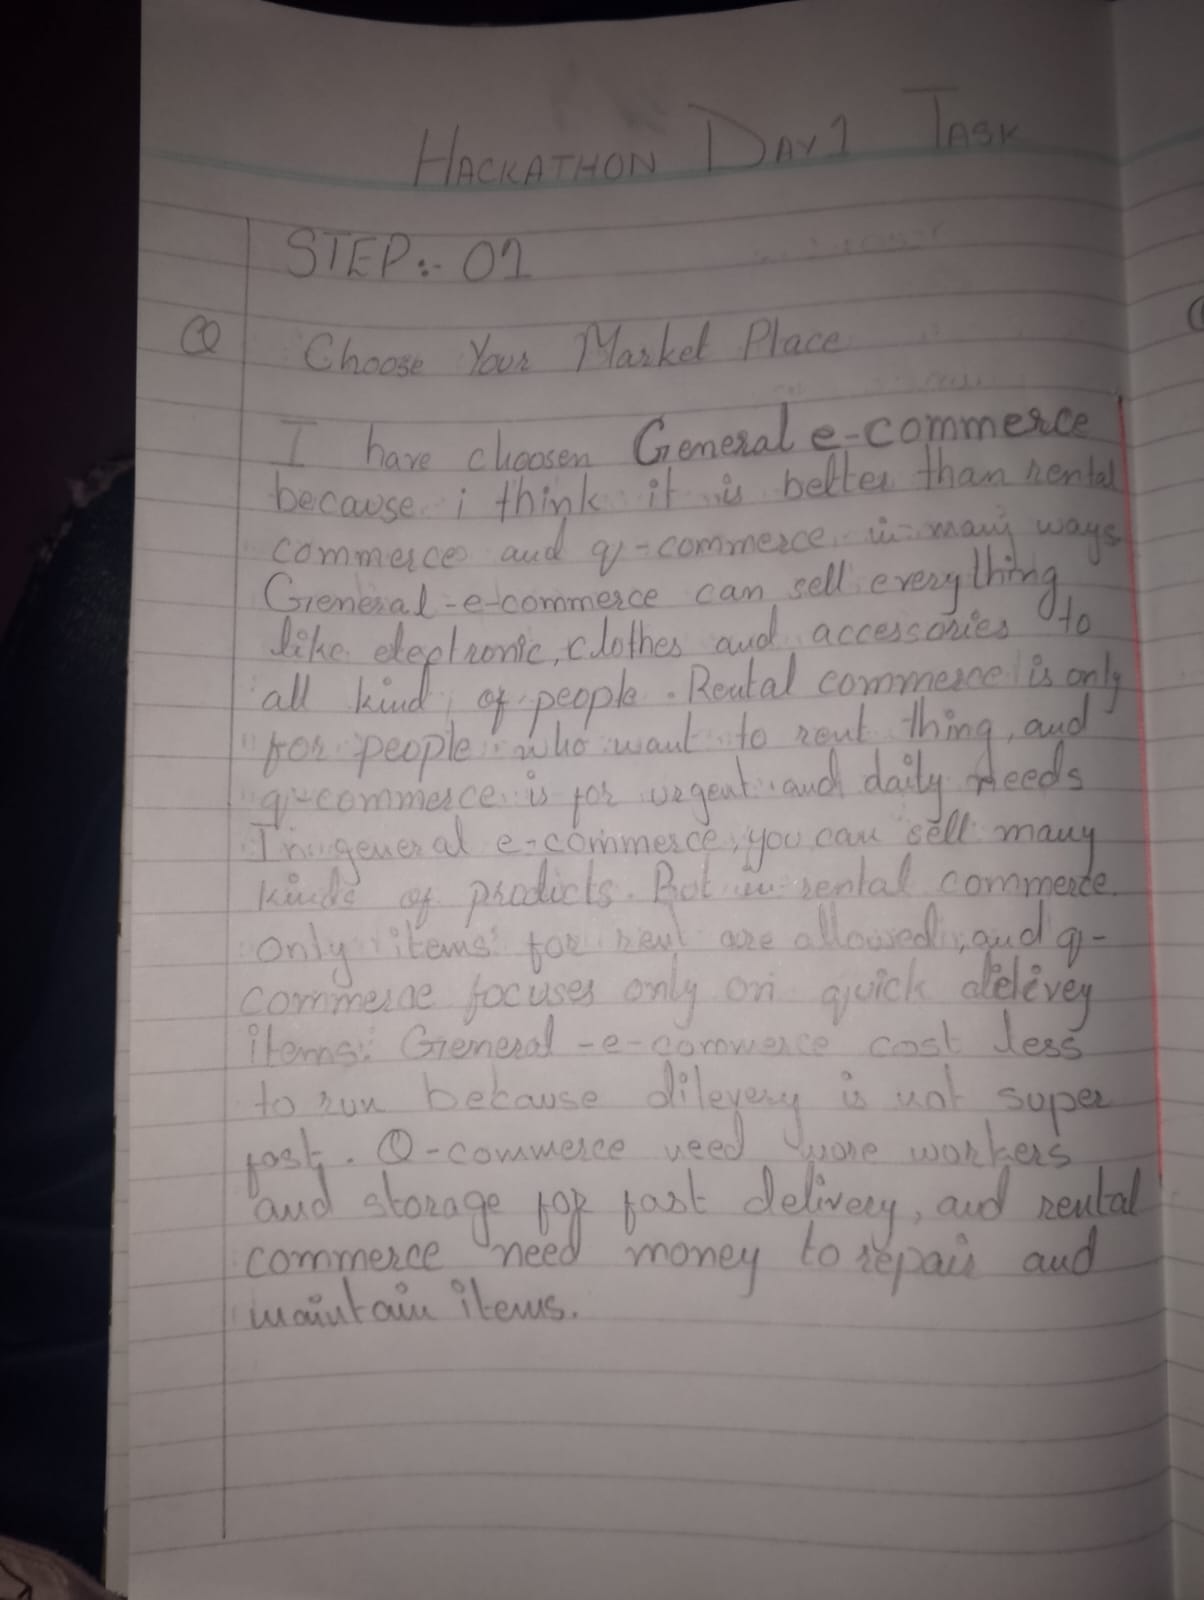 HACKATHON DAY 1 TASK
STEP:- 01
Q Choose Your Market Place
I have choosen General e-commerce
because i think it is better than rental
commerce and q-commerce in many ways
General-e-commerce can sell everything
like eleptronic, clothes and accessories to
all kind of people. Rental commerce is only
for people who want to rent thing, and
q-commerce is for urgent and daily needs
In general e-commerce, you can sell many
kinds of products. But in rental commerce
only items for rent are allowed, and q-
commerce focuses only on quick delivey
items. General-e-commerce cost less
to run because dilevery is not super
fast. Q-commerce need more workers
and storage for fast delivery, and rental
commerce need money to repair and
maintain items.